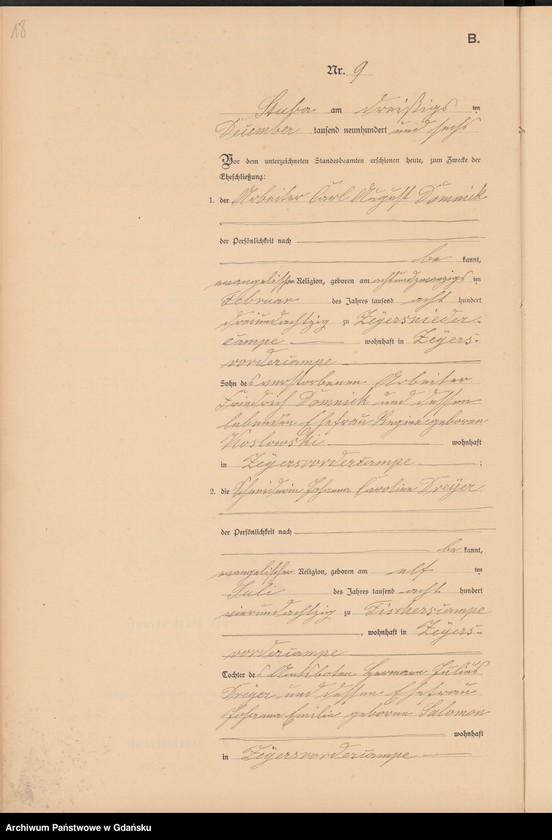 18
B.
Nr. 9
Stuba am dreißigs ten
Dezember tausend neunhundert und sechs
Vor dem unterzeichneten Standesbeamten erschienen heute, zum Zwecke der
Eheschließung:
1. der Arbeiter Carl August Domnick
der Persönlichkeit nach
be kannt,
evangelischer Religion, geboren am achtundzwanzigs ten
Februar des Jahres tausend acht hundert
dreiundachtzig zu Zeyersnieder-
campe wohnhaft in Zeyers-
vordercampe
Sohn des verstorbenen Arbeiter
Friedrich Domnick und dessen
lebenden Ehefrau Regine geboren
Koslowski wohnhaft
in Zeyersvordercampe ;
2. die Schneiderin Johanna Caroline Dreyer
der Persönlichkeit nach
be kannt,
evangelischer Religion, geboren am elf ten
Juli des Jahres tausend acht hundert
vierundachtzig zu Fischerscampe
, wohnhaft in Zeyers-
vordercampe
Tochter des Amtsboten Hermann Julius
Dreyer und dessen Ehefrau
Johanna Emilie geborene Salomon
wohnhaft
in Zeyersvordercampe
Archiwum Państwowe w Gdańsku